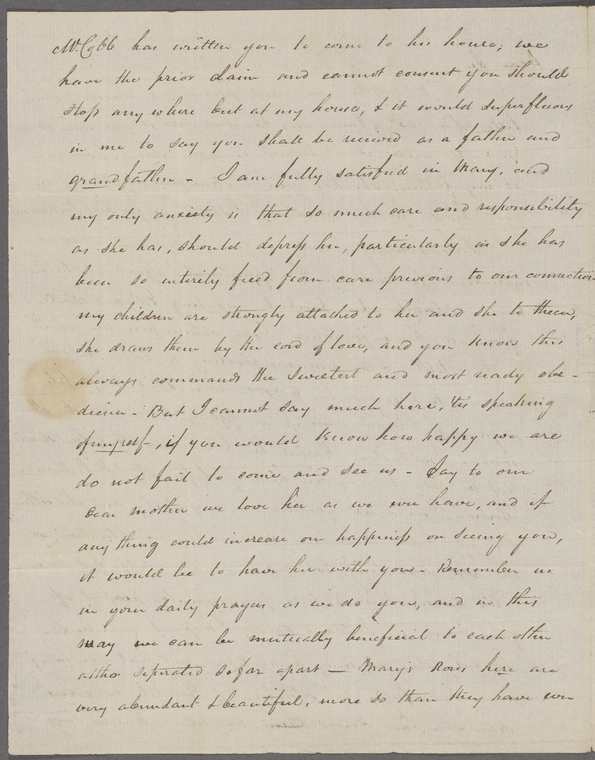 Mr. Cobb has written you to come to his house; we
have the prior claim and cannot consent you should
stop any where but at my house, & it would superfluous
in me to say you shall be received as a father and
grandfather - I am fully satisfied in Mary, and
my only anxiety is that so much care and responsibility
as she has, should depress her, particularly as she has
been so entirely freed from care previous to our connection
my children are strongly attached to her and she to them,
she draws them by the cord of love, and you know this
always commands the sweetest and most ready obe-
dience - But I cannot say much here, 'tis speaking
of myself, if you would know how happy we are
do not fail to come and see us - Say to our
dear mother we love her as we ever have, and if
any thing could increase our happiness on seeing you,
it would be to have her with you - Remember us
in your daily prayers as we do you, and in this
way we can be mutually beneficial to each other
altho seperated so far apart - Mary's Roses here are
very abundant & beautiful, more so than they have ever